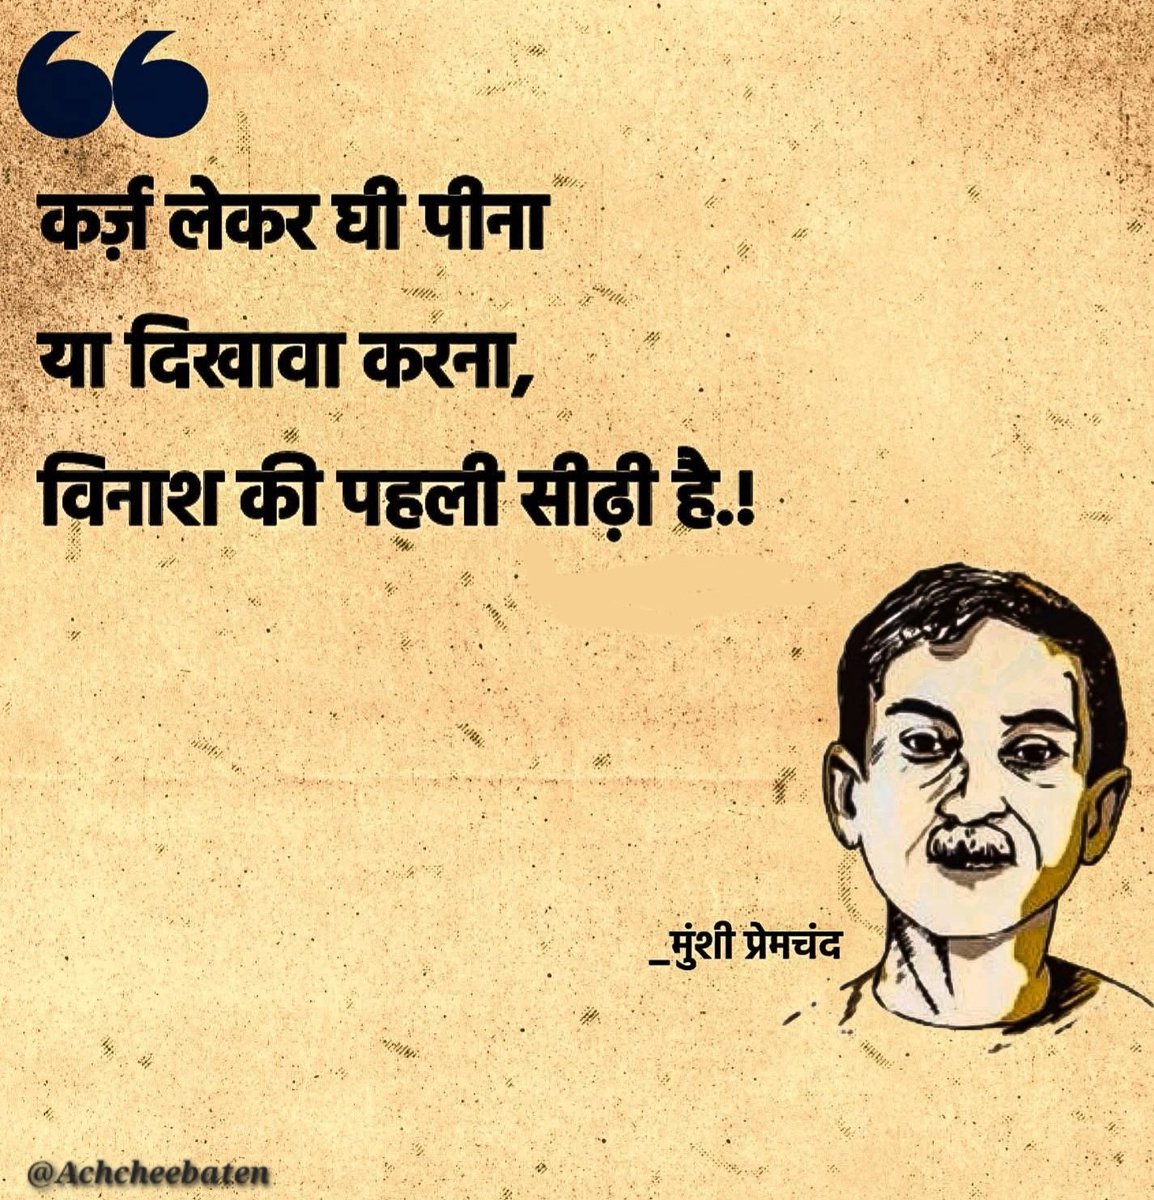 कर्ज़ लेकर घी पीना
या दिखावा करना,
विनाश की पहली सीढ़ी है.!
_मुंशी प्रेमचंद
@Achcheebaten